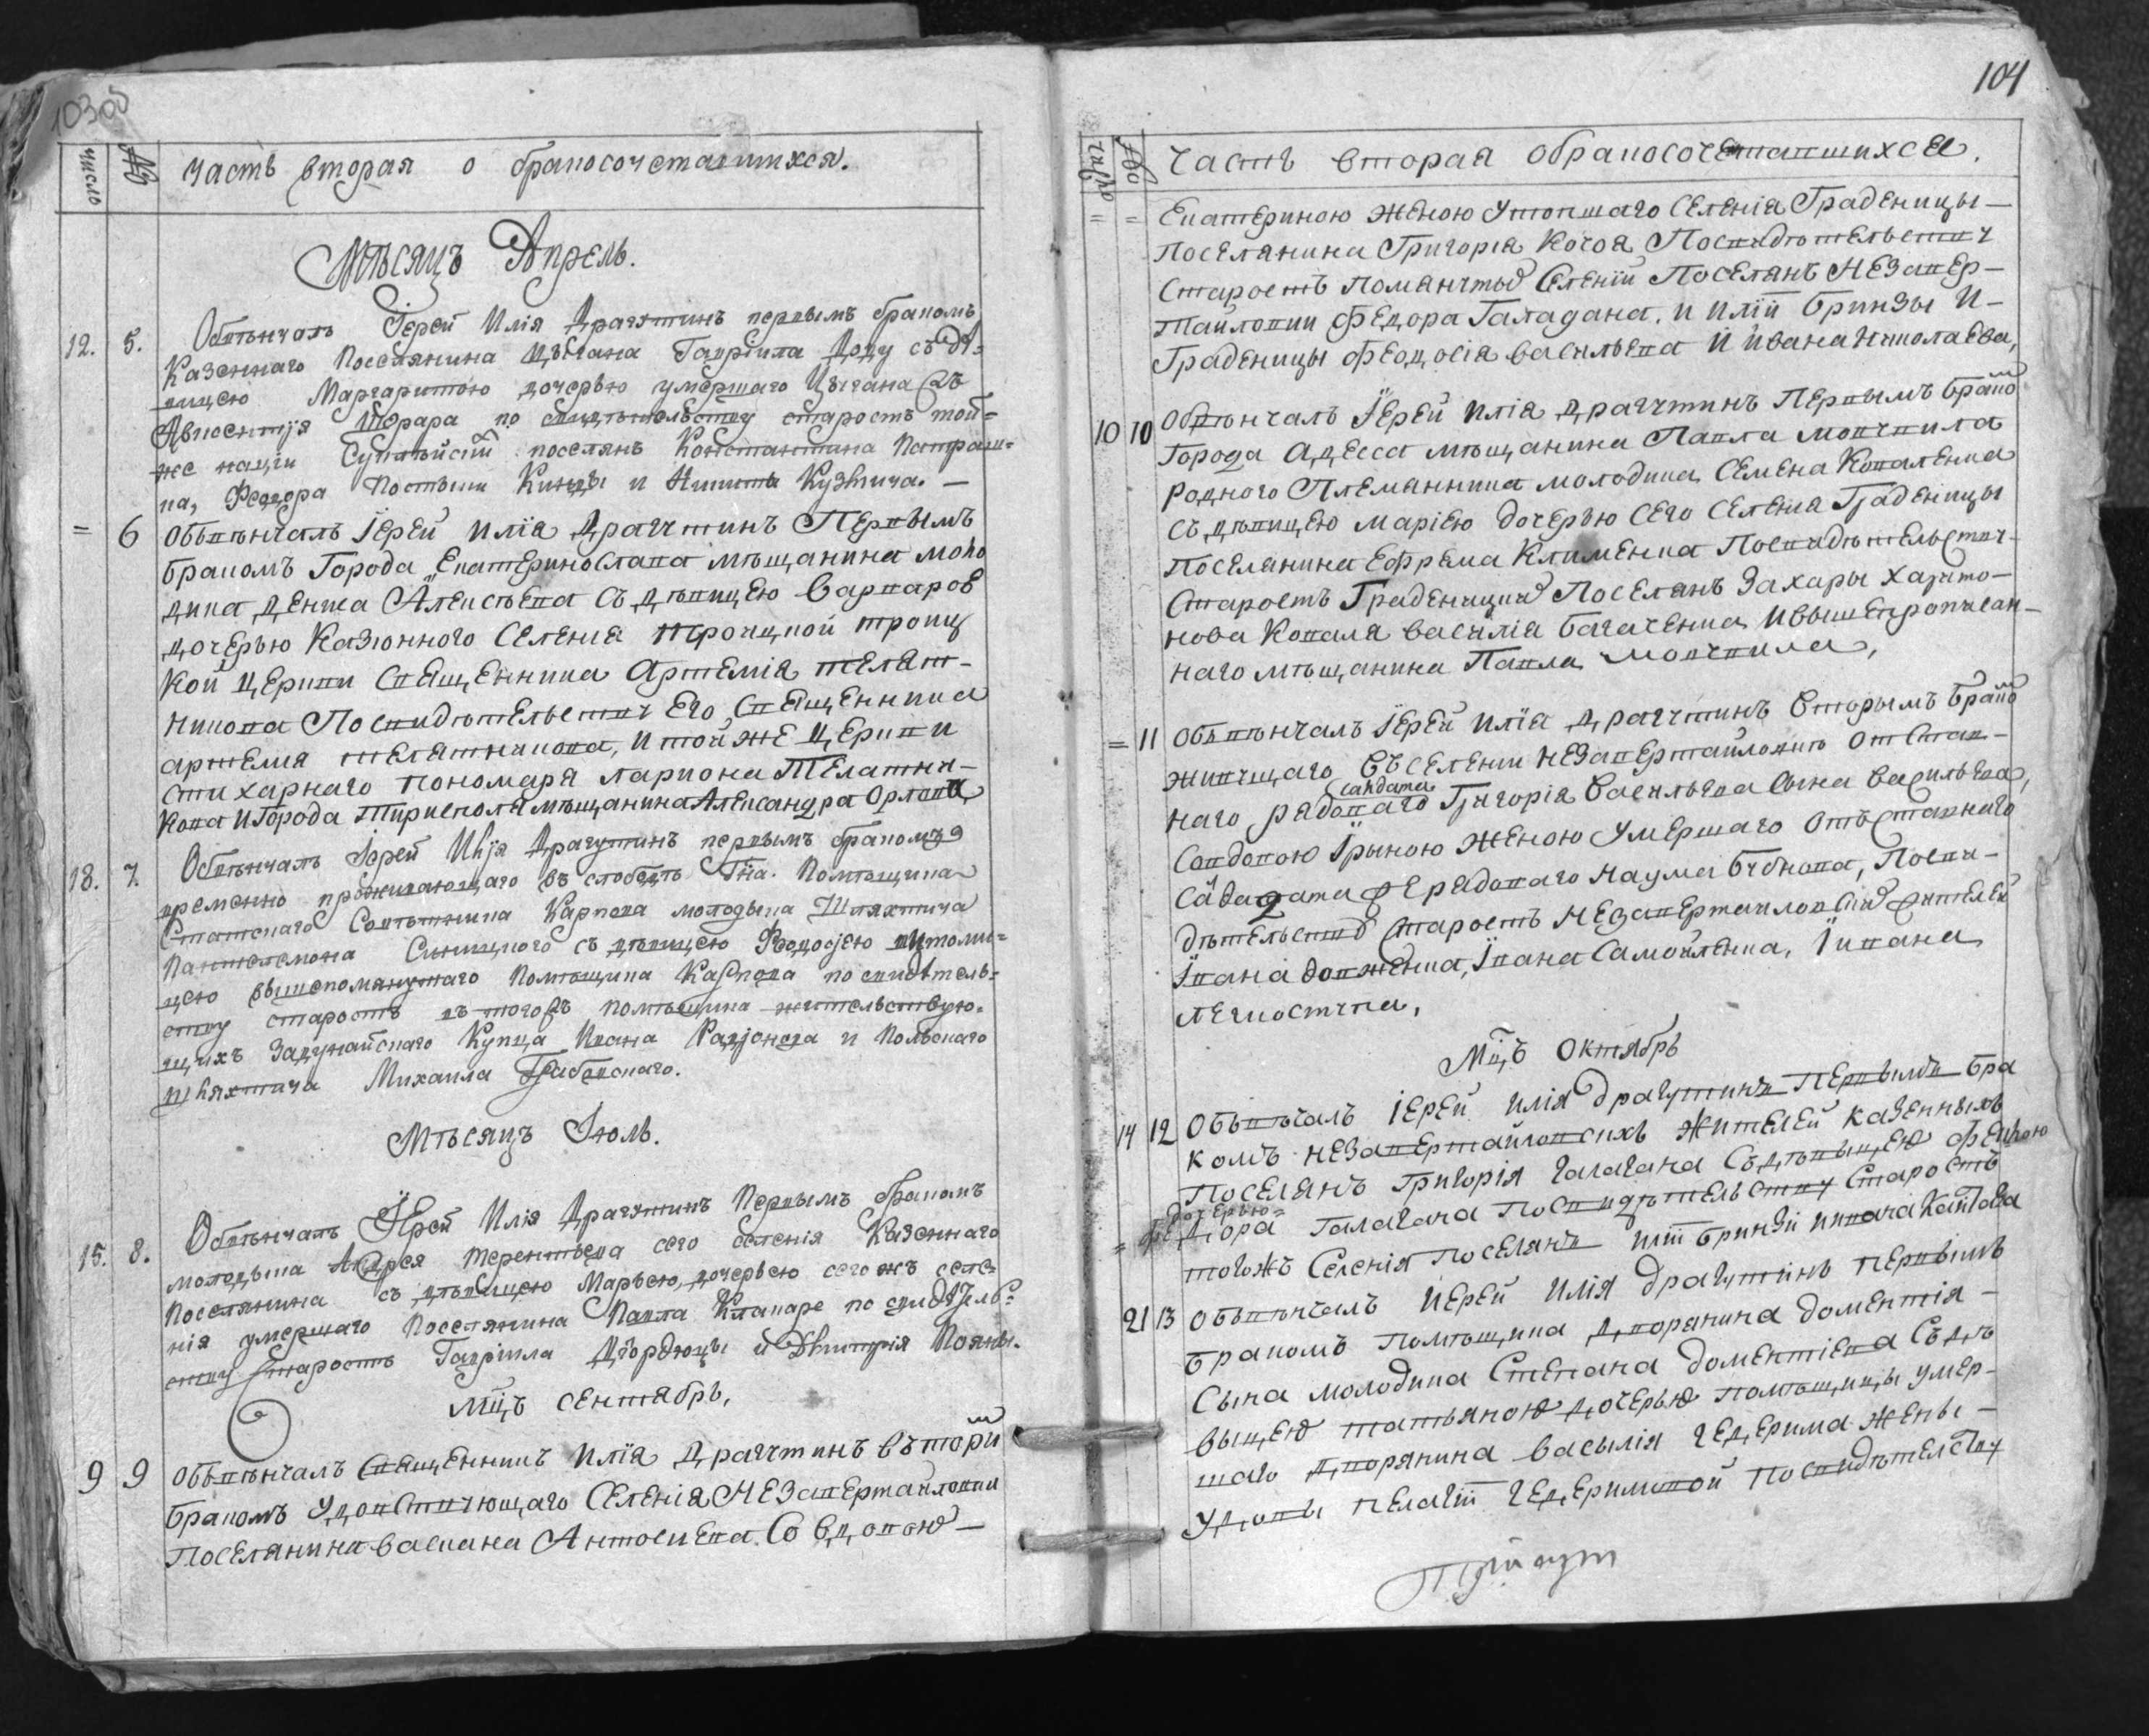 103об
число
№
часть вторая о бракосочетавшихся.
Мѣсяцъ Апрель.
12. 5. Обвѣнчалъ Іерей Илія Драгутинъ первымъ бракомъ
Казеннаго Поселянина Цѣгана Гавріила Доду съ дѣ=
вицею Маргаритою дочерью умершаго Цыгана
Авксентія по свидѣтельству старостъ той=
же нацги поселянъ Константина
ка, Феодора и Никиты Кузмича. —
= 6 Обвѣнчалъ Іерей Илїа Драгутинъ Первымъ
бракомъ Города Екатеринослава мѣщанина моло
дика Алексѣева съ дѣвицею Варварою
дочерью Казіонного Селенія Троицкой троиц
кой церкви Священника Артемія Телят-
никова Посвидѣтельству Его Священника
артемия телятникова, и той же церкви
стихарнаго пономаря лариона Телатни-
кова и Города Тирисполя мѣщанина Александра Орлова
18. 7. Обвѣнчалъ Іерей Илія Драгутинъ первымъ бракомъ
временно проживающаго въ слободѣ Помѣщика
Статскаго Совѣтника Карпова молодыка Шляхтича
Пантелемона с дѣвицею Феодосіею
цею вышепомянутаго Помѣщика Карпова по свидѣтель=
ству старостъ въ тогожъ помѣщика жительствую=
щихъ Задунайскаго Купца Ивана Радіонова и Польскаго
шляхтича Михаила Грабовскаго.
Мѣсяцъ Іюль.
15. 8. Обвѣнчалъ Іерей Илія Драгутинъ Первымъ бракомъ
молодыка Андрея Терентьева сего селенія Казеннаго
Поселянина съ дѣвицею Марьею, дочерью сего жъ селе=
нія умершаго Поселянина Павла по свидѣтель=
ству Старостъ Гавріила и Дмитрія Пояны.
Мцъ Сентябрь,
9 9 Обвѣнчалъ Священникъ Илїа Драгутинъ вътори
бракомъ Селенія Незавертайловки
Поселянина васиана Антосиева. Со вдовою —
104
число
часть вторая обракосочетавшихся.
= = Екатериною женою Утопшаго Селенія Граденицы —
Поселянина Григоріа Кочоа Посвидѣтельству
Старостъ Поманутыѵ Селеній Поселянъ Незавер-
тайловки Федора Галадана. и Иліи Бринзы И —
Граденицы Феодосія васильева и ивана Николаева,
10 10 Обвѣнчалъ Іерей Илїа Драгутинъ Первымъ брако
Города Адесса мѣщанина Павла
Родного Племянника молодика Семена Коваленка
съ дѣвицею Маріею дочерью Сего Селенія Граденицы
Поселянина Ефрема Клименка Посвидѣтельству
Старостъ Граденицкиѵ Поселянъ Захары харито-
нова Коваля василіа Багаченка Ивышепрописан-
наго мѣщанина Павла
= 11 Обвѣнчалъ Іерей Илїа Драгутинъ Вторымъ брако
живущаго въ селении Незавертайловкѣ отстав-
салдата
наго рядоваго Григорія Васильева Сына васильева,
Совдовою Їрыною женою Умершаго Отъставного
Салдата рядоваго Наума Посви-
дѣтельству Старостъ Незавертайловскиѵ жителей
Івана довженка, Івана Самойленка, Іивана
Мцъ Октябрь
14 12 Обвѣнчалъ Іерей Илія Драгутинъ Первымъ бра
комъ Незавертайловскихъ Жителей Казенныхъ
Поселянъ Григорія Галагана Съдѣвыцею
дочерью
= Федора Галагана Посвидѣтельству Старостъ
тогожъ Селенія Поселянъ Иліи Бринзы иивана
21 13 Обвѣнчалъ Иерей Илія Драгутинъ первымъ
бракомъ помѣщика дворянина доментія —
Сына молодика Степана доментіева Съдѣ
выцею татьяною дочерью помѣщицы умер-
шаго дворянина василія Чедерима Жены —
удовы Пелагии Чедеримовой посвидѣтелству